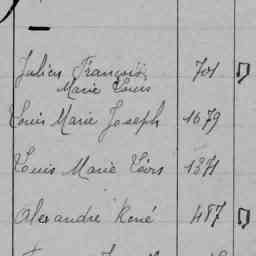 Julien François 701
Marie Louis
Louis Marie Joseph 1679
Louis Marie 1371
Alexandre René 487